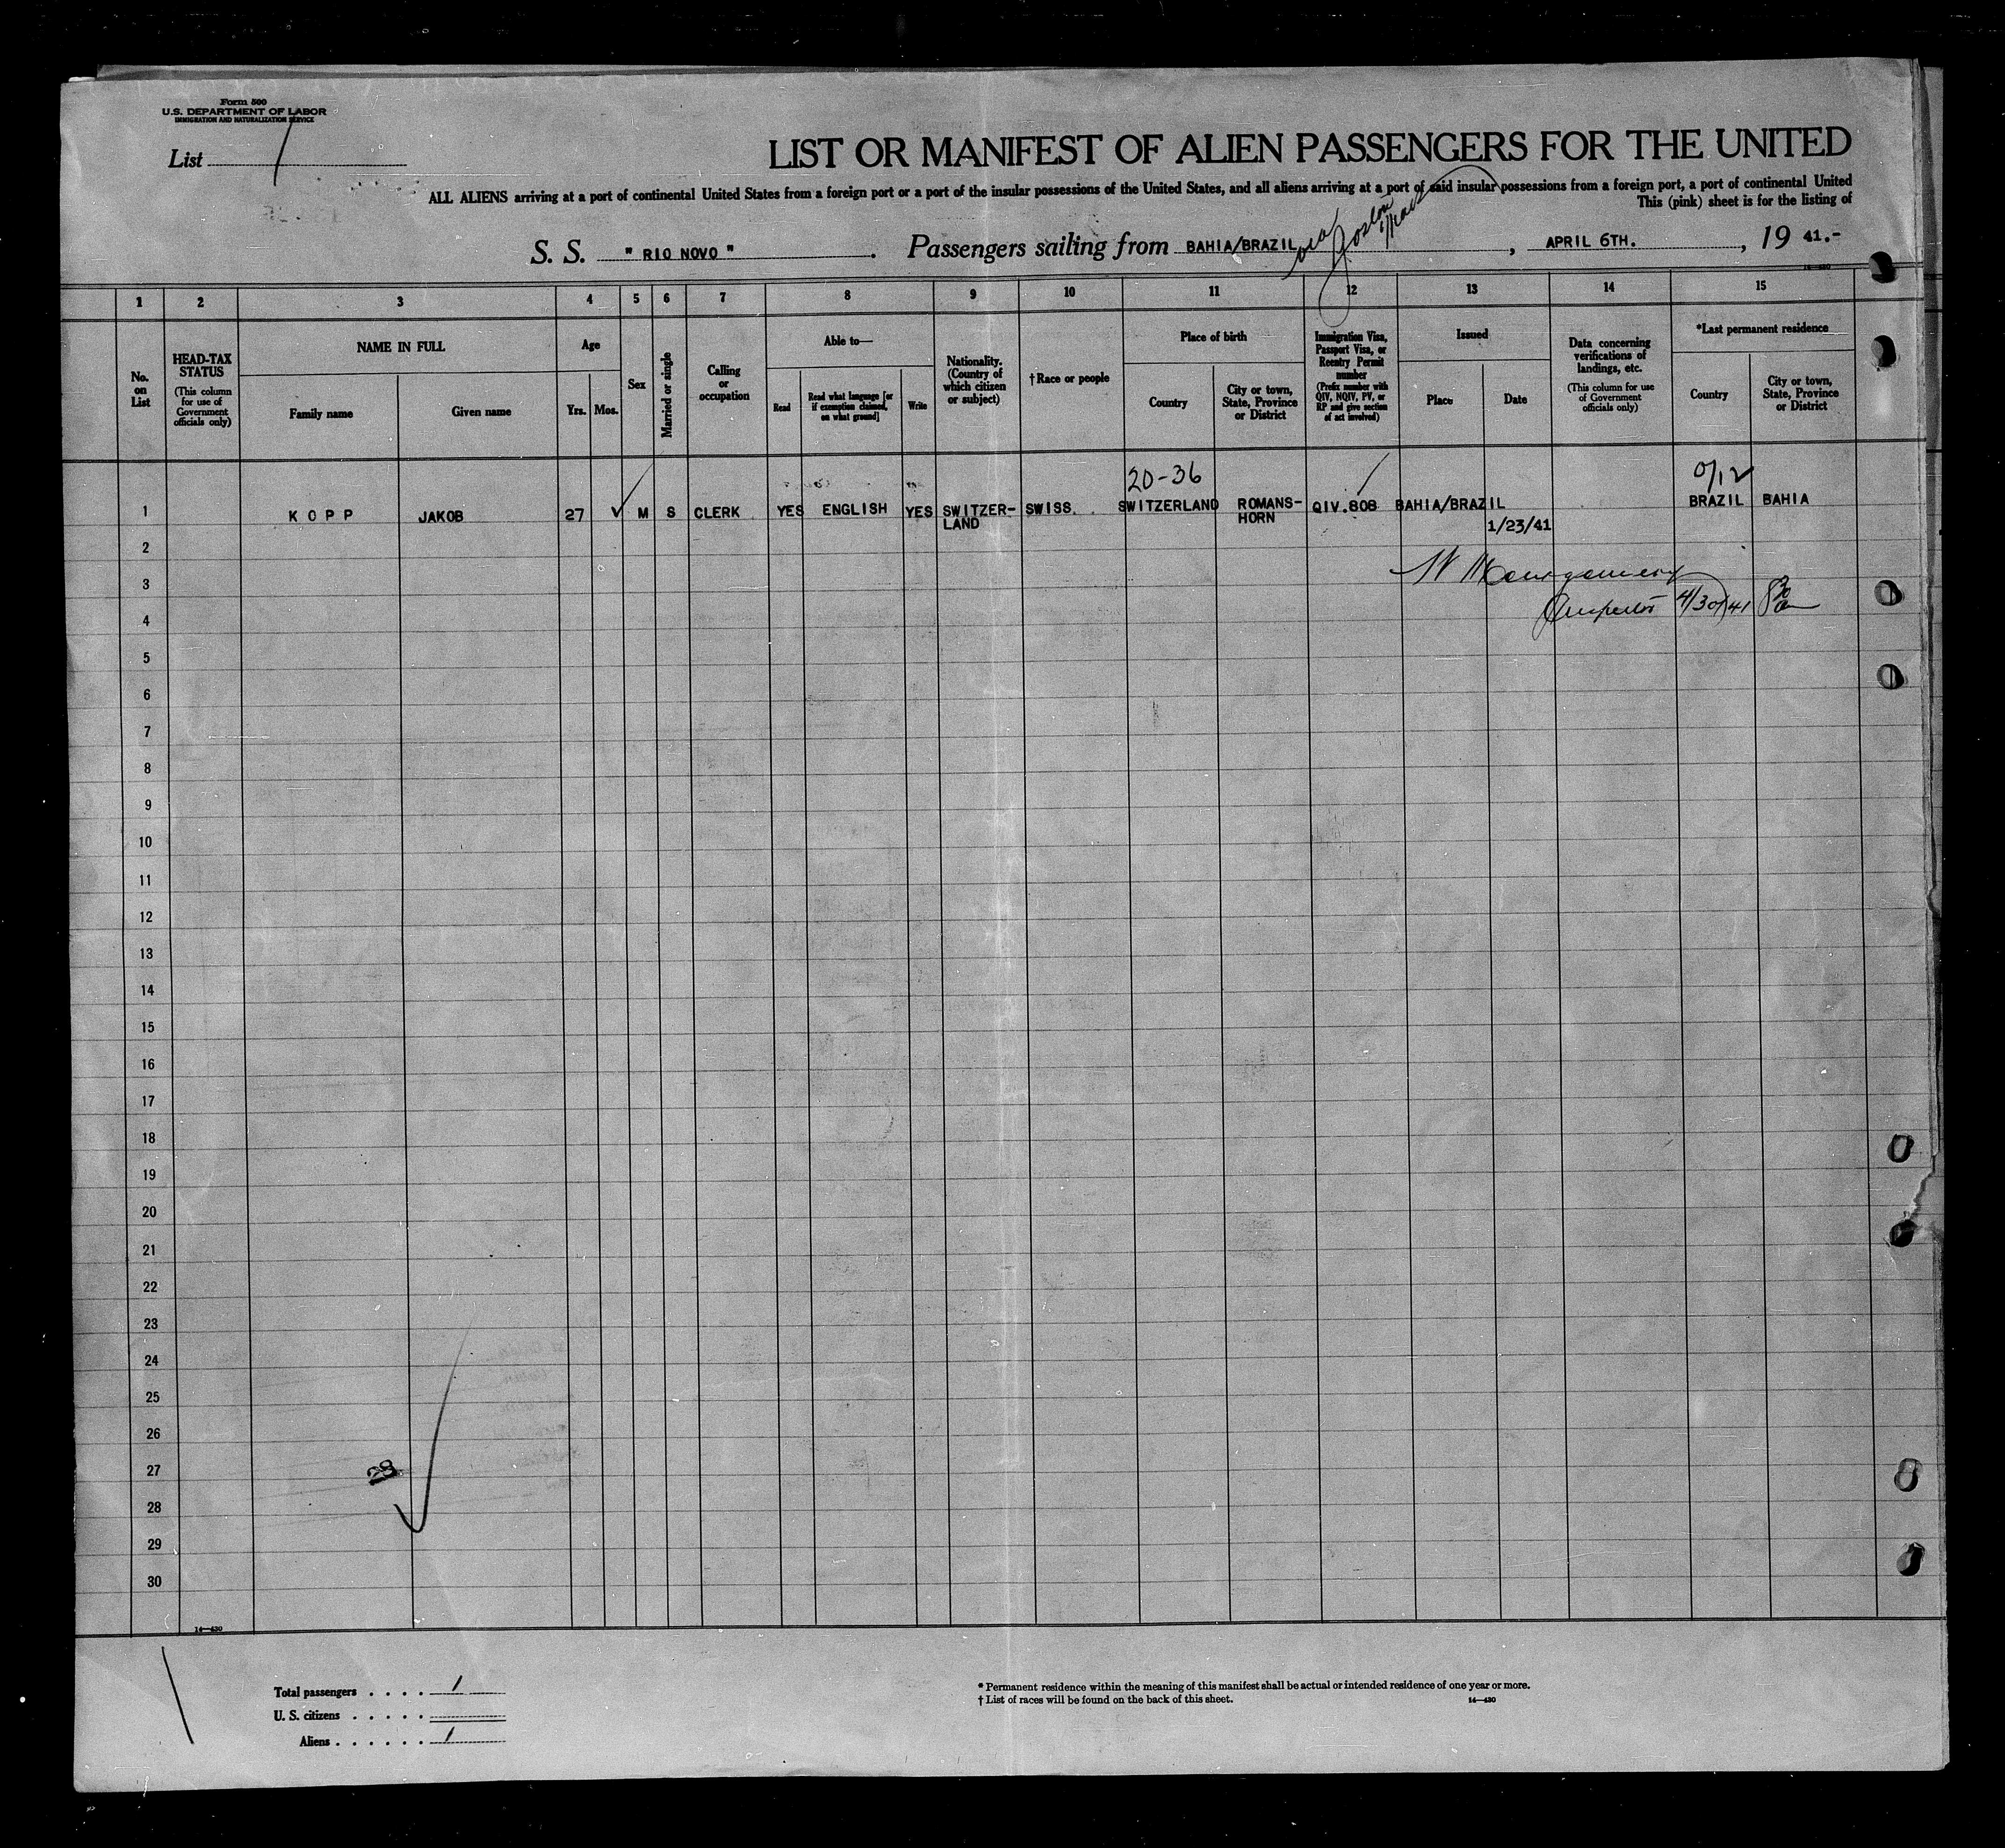 Form 500
U.S. DEPARTMENT OF LABOR
IMMIGRATION AND NATURALIZATION SERVICE
List 1
LIST OR MANIFEST OF ALIEN PASSENGERS FOR THE UNITED
ALL ALIENS arriving at a port of continental United States from a foreign port or a port of the insular possessions of the United States, and all aliens arriving at a port of said insular possessions from a foreign port, a port of continental United
This (pink) sheet is for the listing of
S. S. " RIO NOVO " . Passengers sailing from BAHIA/BRAZIL via Boston Mass , APRIL 6TH. , 19 41.-
14-430
1 2 3 4 5 6 7 8 9 10 11 12 13 14 15
No. on List
HEAD-TAX STATUS
(This column for use of Government officials only)
NAME IN FULL
Family name
Given name
Age
Yrs.
Mos.
Sex
Married or single
Calling or occupation
Able to—
Read
Read what language [or if exemption claimed, on what ground]
Write
Nationality. (Country of which citizen or subject)
†Race or people
Place of birth
Country
City or town, State, Province or District
Immigration Visa, Passport Visa, or Reentry Permit number
(Prefix number with QIV, NQIV, PV, or RP and give section of act involved)
Issued
Place
Date
Data concerning verifications of landings, etc.
(This column for use of Government officials only)
*Last permanent residence
Country
City or town, State, Province or District
20-36
1 KOPP JAKOB 27 V M S CLERK YES ENGLISH YES SWITZER-LAND SWISS. SWITZERLAND ROMANS-HORN QIV.808 BAHIA/BRAZIL 1/23/41 BRAZIL BAHIA
2
W Montgomery
3
Inspector 4/30/41
4
5
6
7
8
9
10
11
12
13
14
15
16
17
18
19
20
21
22
23
24
25
26
27
28
28
29
30
14-430
Total passengers . . . . 1
U. S. citizens . . . . .
Aliens . . . . . . 1
* Permanent residence within the meaning of this manifest shall be actual or intended residence of one year or more.
† List of races will be found on the back of this sheet.
14-430